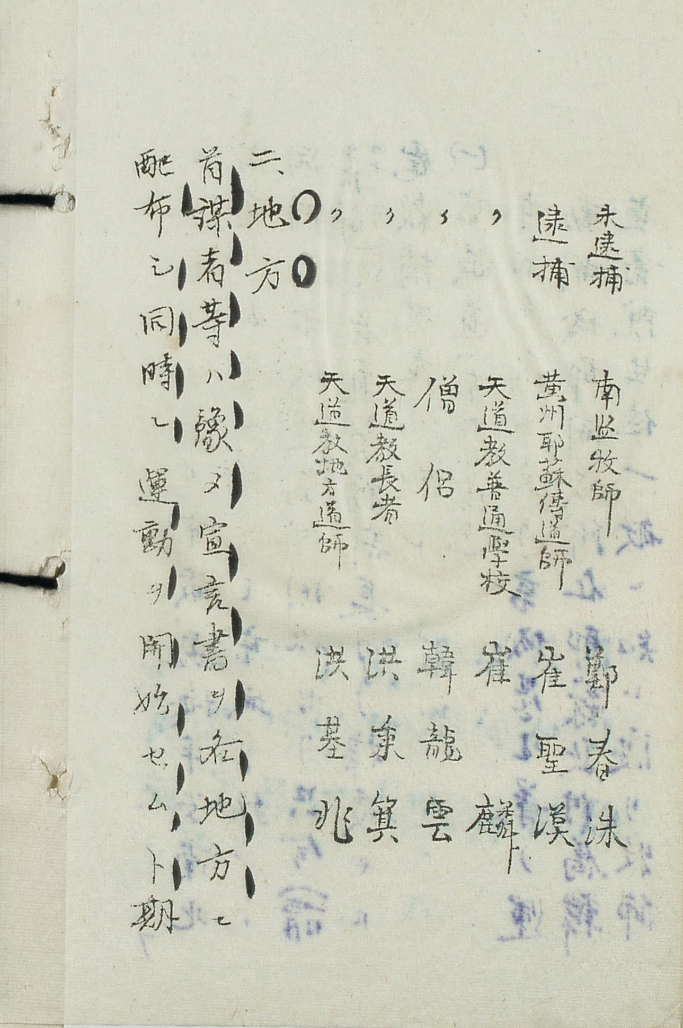 未逮捕 南監牧師 鄭春洙
逮捕 黄州耶蘇傳道師 崔聖漠
〃 天道教普通學校 崔麟
〃 僧侶 韓龍雲
〃 天道教長者 洪秉箕
〃 天道教地方道師 洪基兆
二、地方
首謀者等ハ豫メ宣言書ヲ各地方ニ
配布シ同時ニ運動ヲ開始セムト期